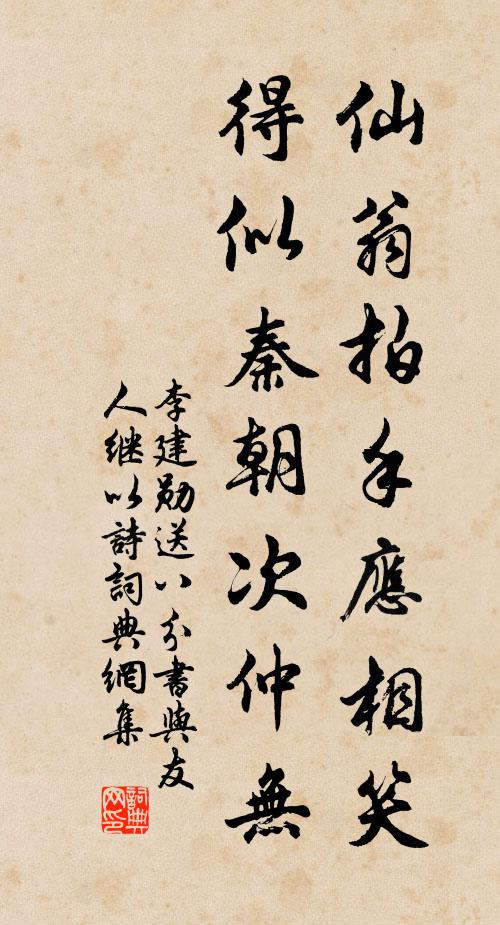 仙翁拍手應相笑
得似秦朝次仲無
李建勛送八分書與友
人继以詩詞典網集
詞典網印